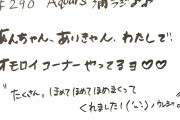 #290 Aqours 浦ラジ♪♪
あんちゃん、ありきゃん、わたしで!
オモロイコーナーやってるヨ♡♡
"たくさん、ほめてほめてほめまくって
くれました!(˙-˙)